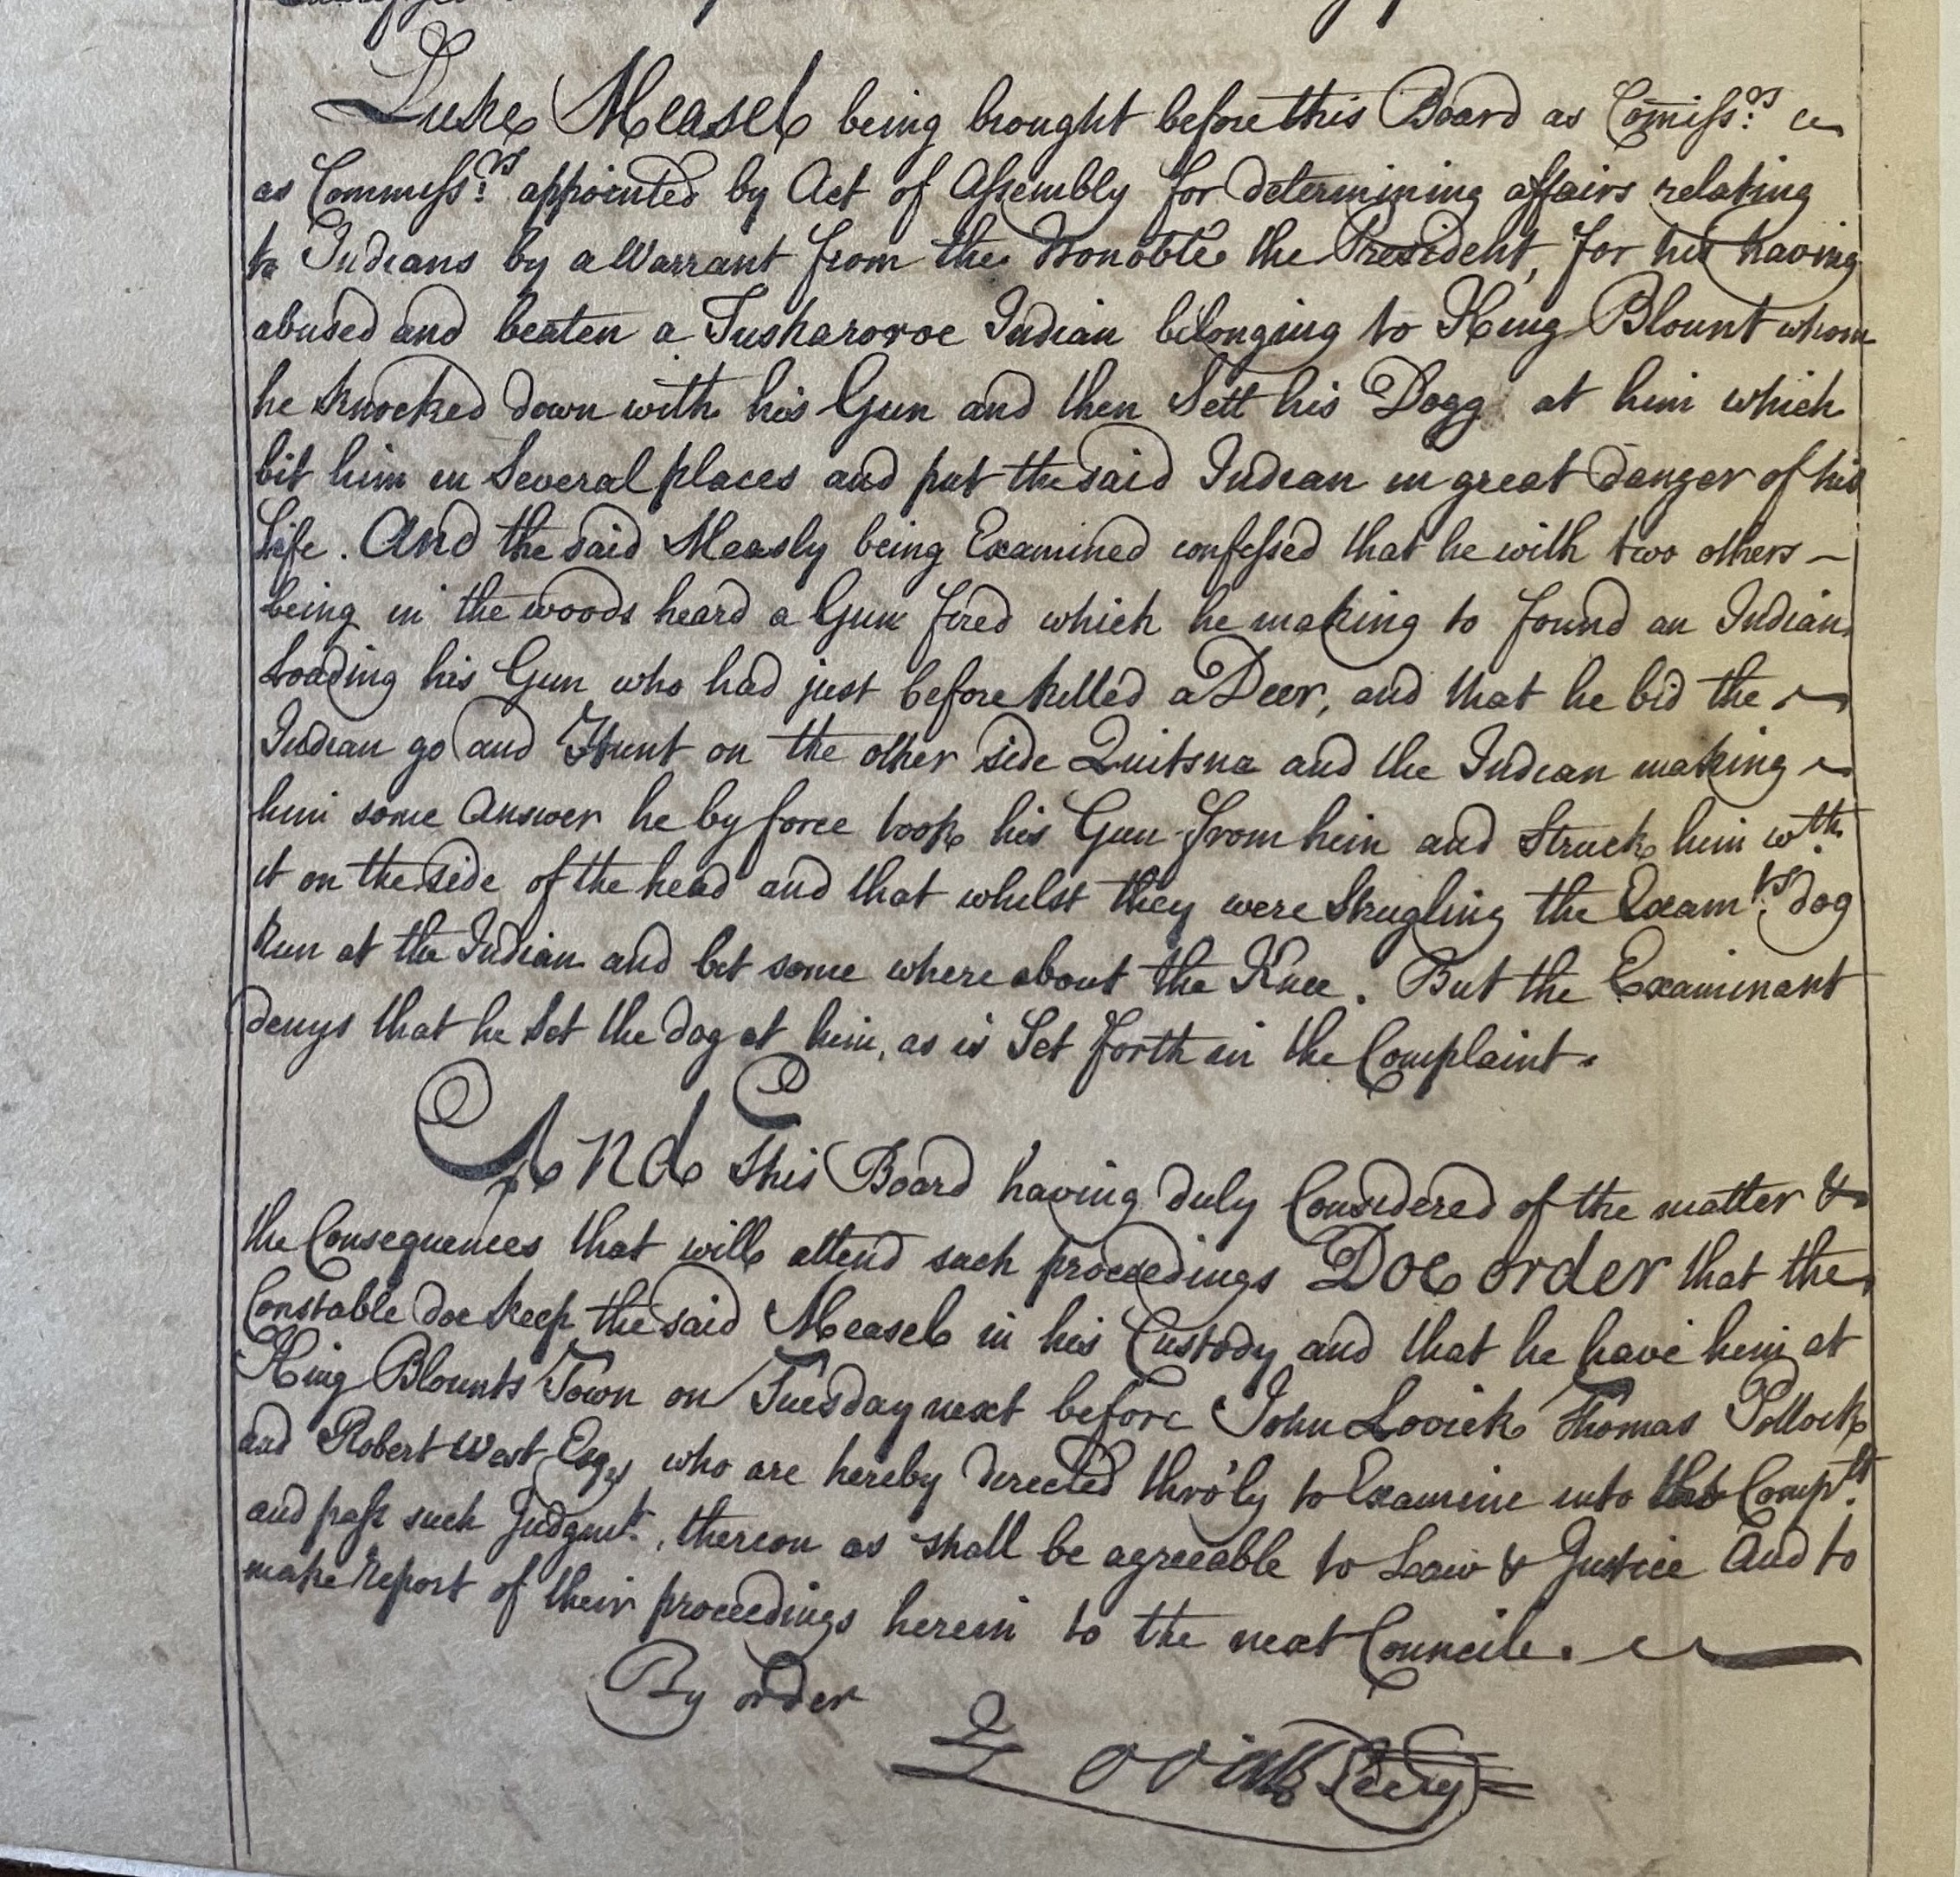 Luke Measel being brought before this Board as Comiss:rs
as Commiss:rs appointed by Act of Assembly for determining affairs relating
to Indians by a Warrant from the Honoble the President, for his having
abused and beaten a Tuskaroroe Indian belonging to King Blount whom
he knocked down with his Gun and then Sett his Dogg at him which
bit him in Several places and put the said Indian in great danger of his
Life. And the said Measly being Examined confessed that he with two others –
being in the woods heard a Gun fired which he making to found an Indian
Loading his Gun who had just before killed a Deer, and that he bid the
Indian go and Hunt on the other side Quitsna and the Indian making
him some Answer he by force took his Gun from him and Struck him wth.
it on the side of the head and that whilst they were Strugling the Exam:ts dog
Run at the Indian and bit some where about the Knee. But the Examinant
denys that he Set the dog at him, as is Set forth in the Complaint.
And This Board having duly Considered of the matter &
the Consequences that will attend such proceedings Doe order that the
Constable doe keep the said Measel in his Custody and that he have him at
King Blounts Town on Tuesday next before John Lovick Thomas Pollock
and Robert West Esqs who are hereby directed thro'ly to Examine into that Comp:lt
and pass such Judgmt. thereon as shall be agreeable to Law & Justice And to
make report of their proceedings herein to the next Councile.
By order
J Lovick Secry